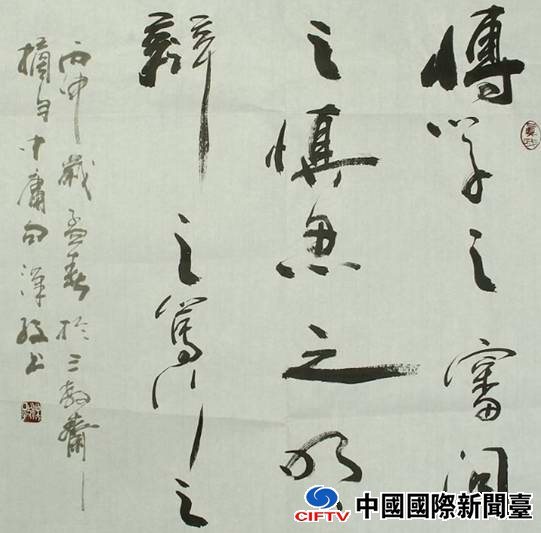 博學之審問
之慎思之明
辯之篤行之
丙申歲孟春於三教齋
摘自中庸句
CIFTV
中國國際新聞臺